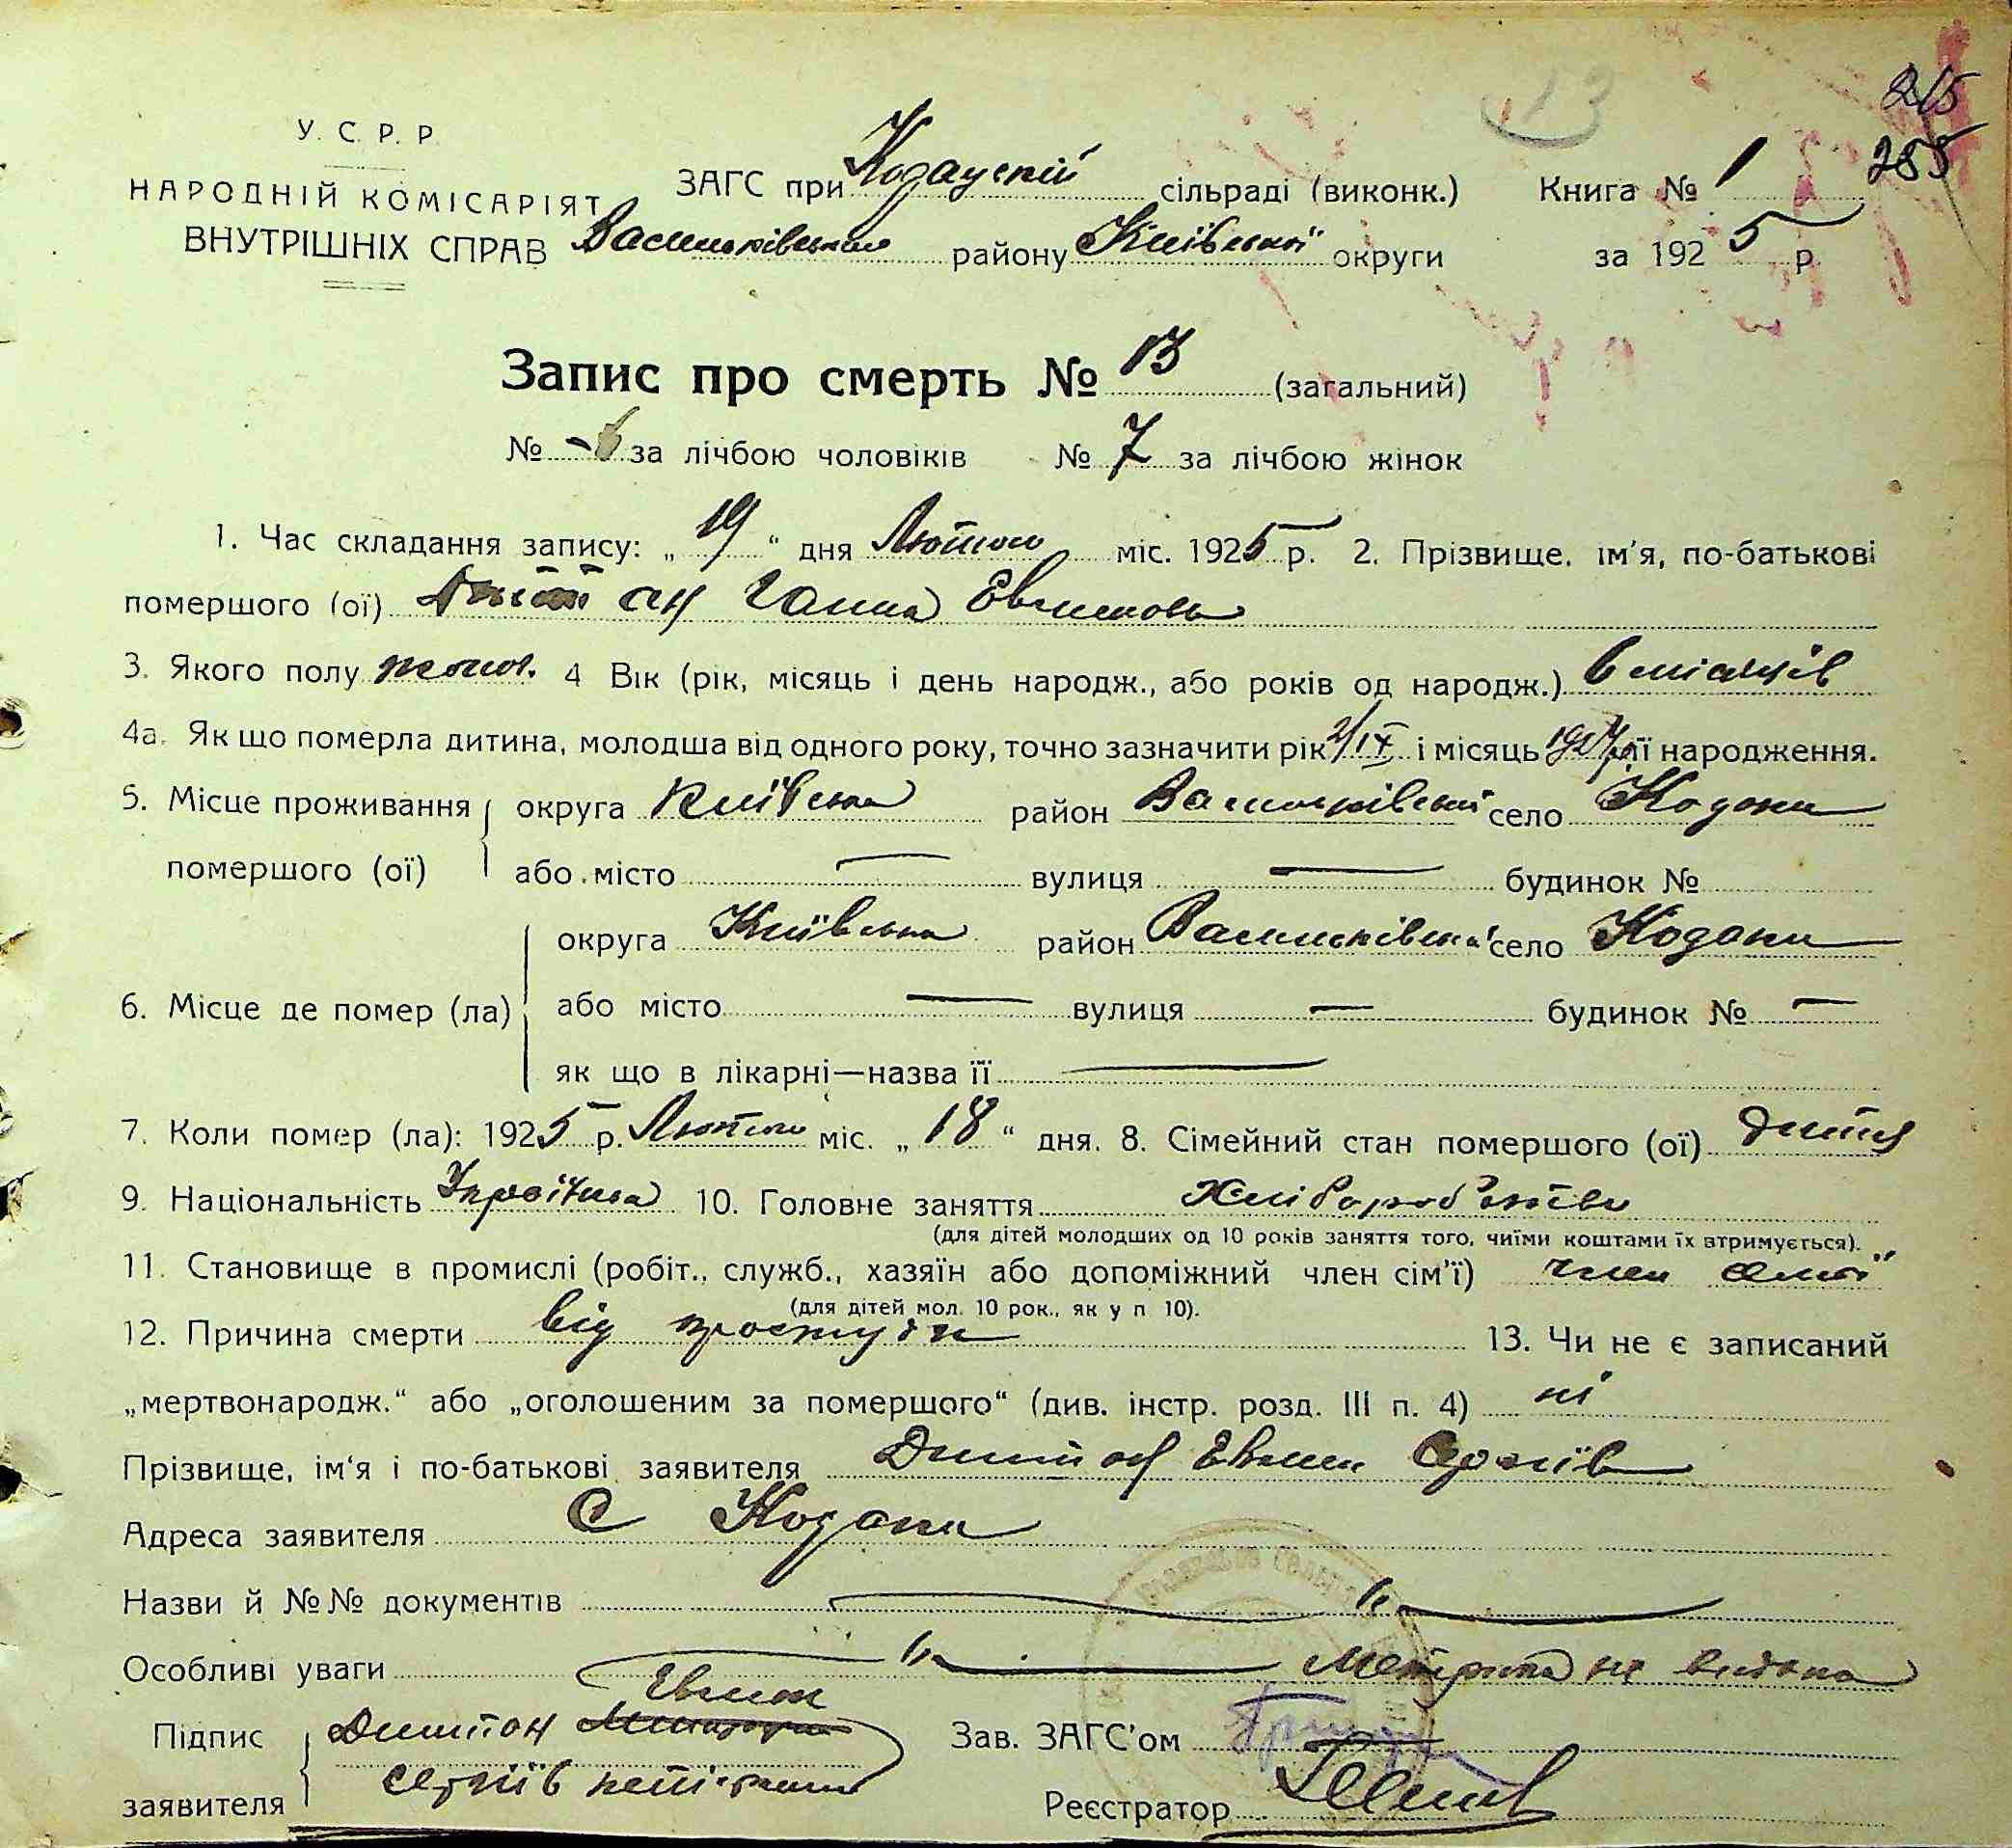 13
215
255
У. С. Р. Р.
НАРОДНІЙ КОМІСАРІЯТ
ВНУТРІШНІХ СПРАВ
ЗАГС при Кодацкій сільраді (виконк.) Книга № 1
Васильківського району Київської округи за 1925 р.
Запис про смерть № 13 (загальний)
№ за лічбою чоловіків № 7 за лічбою жінок
1. Час складання запису: „19“ дня Лютого міс. 1925 р. 2. Прізвище, ім'я, по-батькові
помершого (ої) Ганна
3. Якого полу жіноч. 4 Вік (рік, місяць і день народж., або років од народж.) 6 місяців
4а. Як що померла дитина, молодша від одного року, точно зазначити рік 2/IX і місяць 1924 її народження.
5. Місце проживання помершого (ої) округа Київська район Васильківськ село Кодаки
або місто — вулиця — будинок №
6. Місце де помер (ла) округа Київська район Васильківськ село Кодаки
або місто — вулиця — будинок № —
як що в лікарні—назва її —
7. Коли помер (ла): 1925 р. Лютого міс. „18“ дня. 8. Сімейний стан помершого (ої) дитя
9. Національність Українка 10. Головне заняття Хлібороб
(для дітей молодших од 10 років заняття того, чиїми коштами їх втримується).
11. Становище в промислі (робіт., служб., хазяїн або допоміжний член сім'ї) член сімї
(для дітей мол. 10 рок., як у п 10).
12. Причина смерти від простуди 13. Чи не є записаний
„мертвонародж.“ або „оголошеним за помершого“ (див. інстр. розд. III п. 4) ні
Прізвище, ім'я і по-батькові заявителя
Адреса заявителя С Кодаки
Назви й №№ документів — „ —
Особливі уваги — „ — Метрика не видана
Підпис заявителя
Зав. ЗАГС'ом
Реєстратор